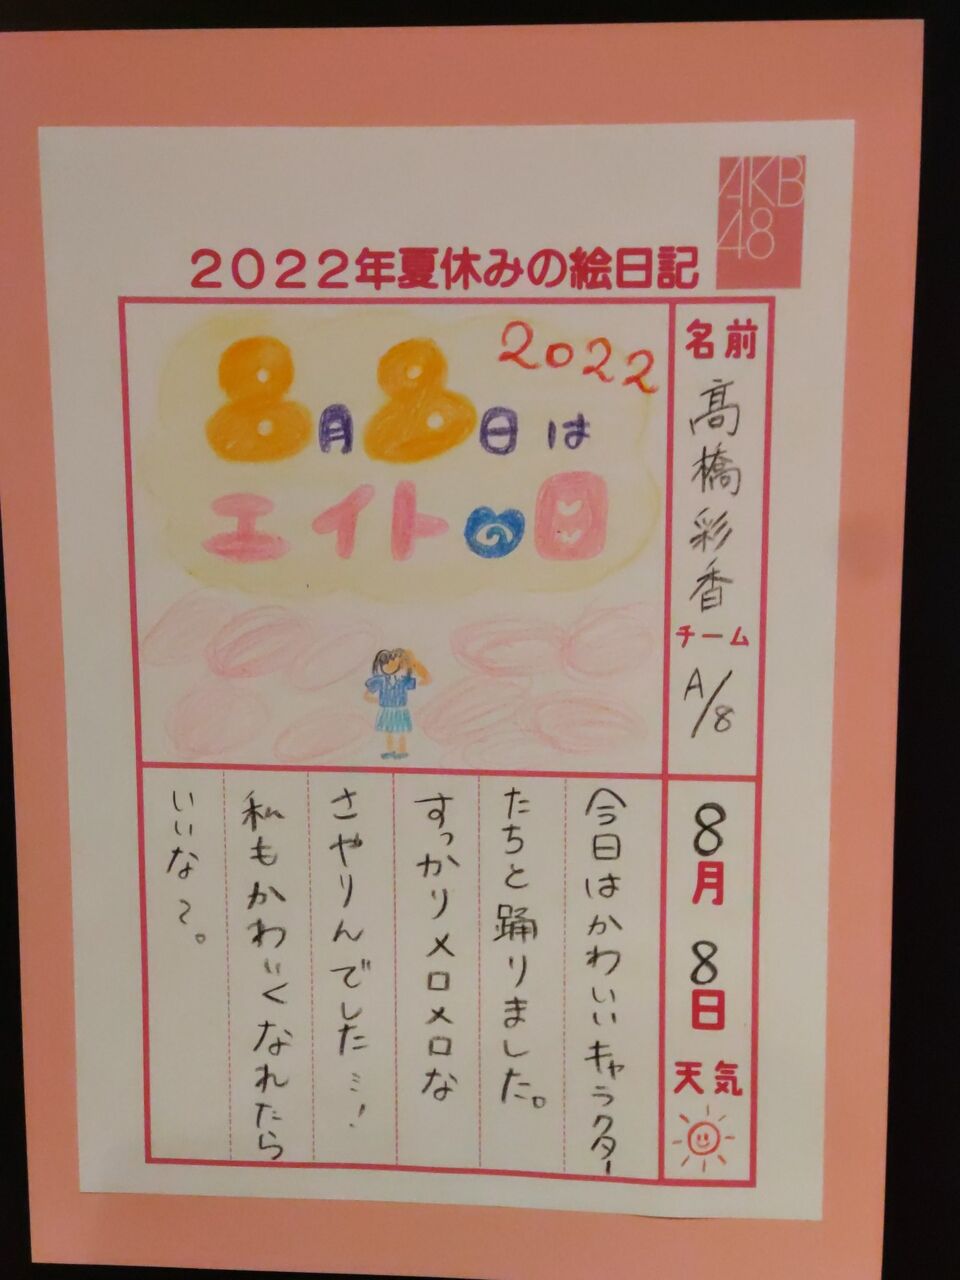 AKB
48
2022年夏休みの絵日記
2022
8月8日は
エイトの日
名前
髙橋彩香
チーム
A/8
8月8日
天気
今日はかわいいキャラクター
たちと踊りました。
すっかりメロメロな
さやりんでした…!
私もかわいくなれたら
いいな〜。